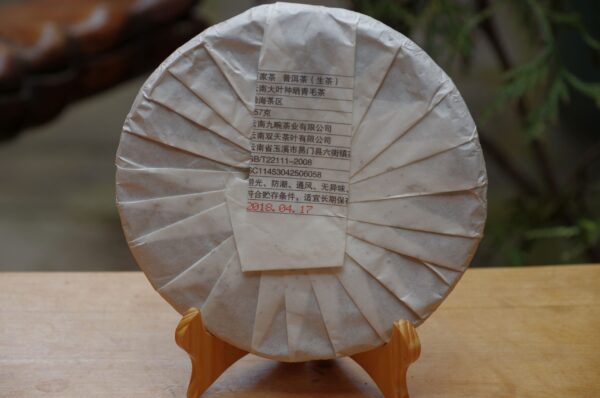 家茶 普洱茶（生茶）
云南大叶种晒青毛茶
勐海茶区
357克
云南九畹茶业有限公司
云南双天茶叶有限公司
云南省玉溪市易门县六街镇
GB/T22111-2008
SC11453042506058
避光、防潮、通风、无异味、
符合贮存条件，适宜长期保存
2018.04.17